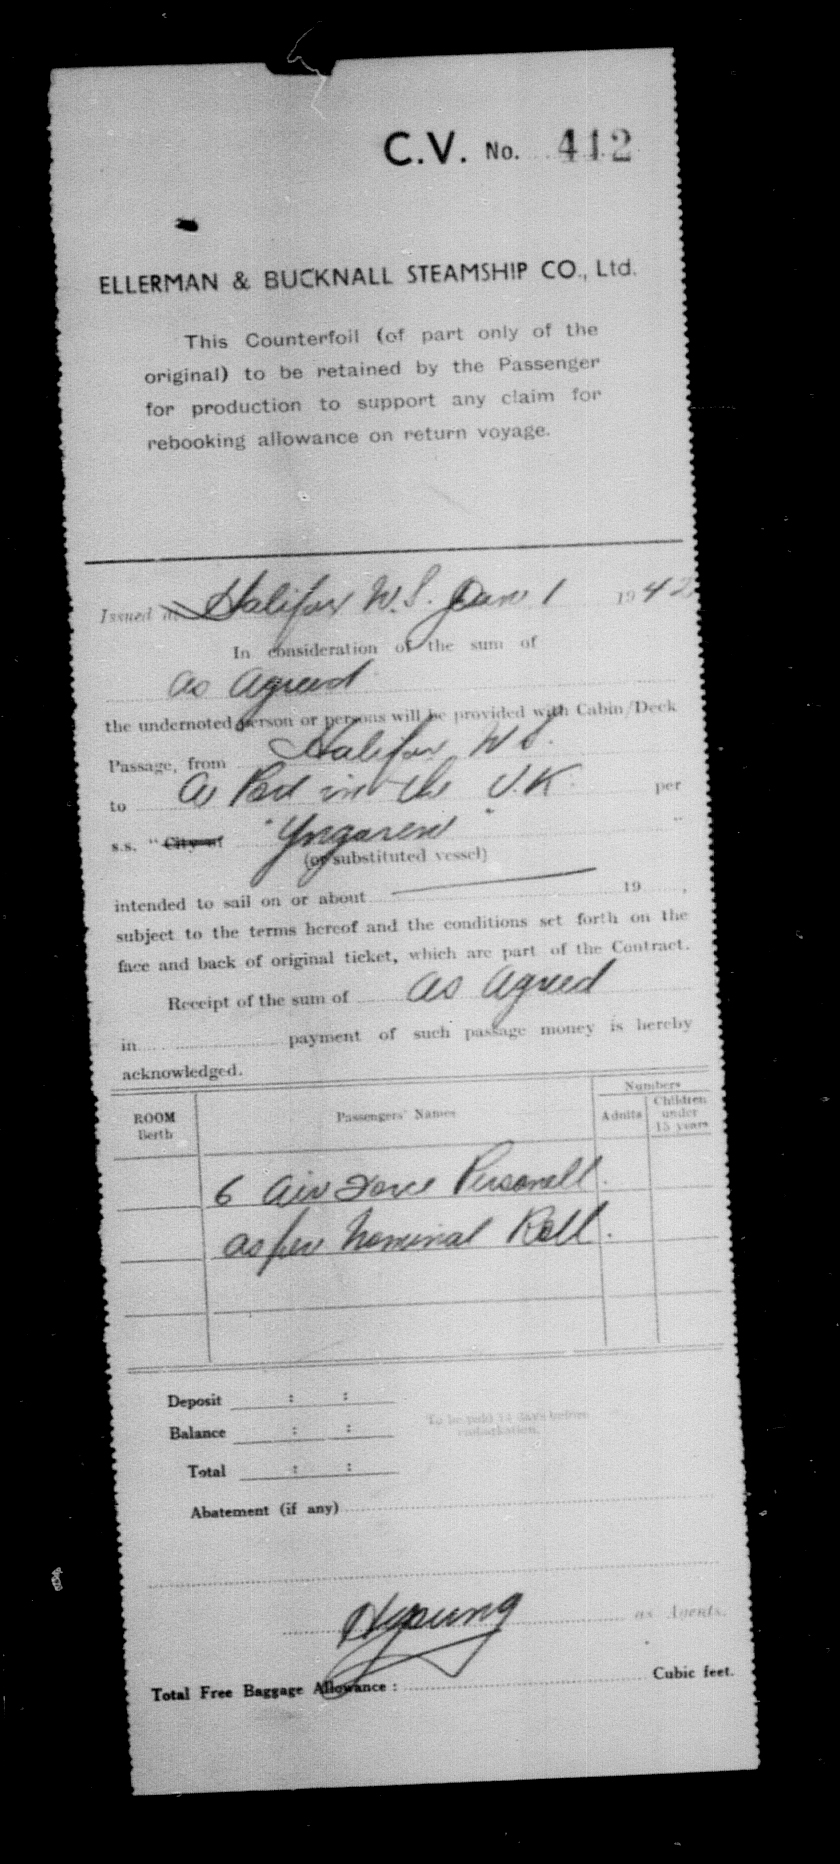 C.V. No. 412
ELLERMAN & BUCKNALL STEAMSHIP CO., Ltd.
This Counterfoil (of part only of the
original) to be retained by the Passenger
for production to support any claim for
rebooking allowance on return voyage.
Issued at Halifax N.S. Jan 1 1942
In consideration of the sum of
as Agreed
the undernoted person or persons will be provided with Cabin/Deck
Passage, from Halifax N S.
to A Port in the U.K. per
s.s. "City of "Yngaren" "
(or substituted vessel)
intended to sail on or about 19 ,
subject to the terms hereof and the conditions set forth on the
face and back of original ticket, which are part of the Contract.
Receipt of the sum of as Agreed
in payment of such passage money is hereby
acknowledged.
ROOM Berth Passengers' Names Numbers Adults Children under 15 years
6 Air Force Personell.
as per Nominal Roll.
Deposit : :
Balance : : To be paid 14 days before
embarkation.
Total : :
Abatement (if any)
as Agents.
Total Free Baggage Allowance : Cubic feet.